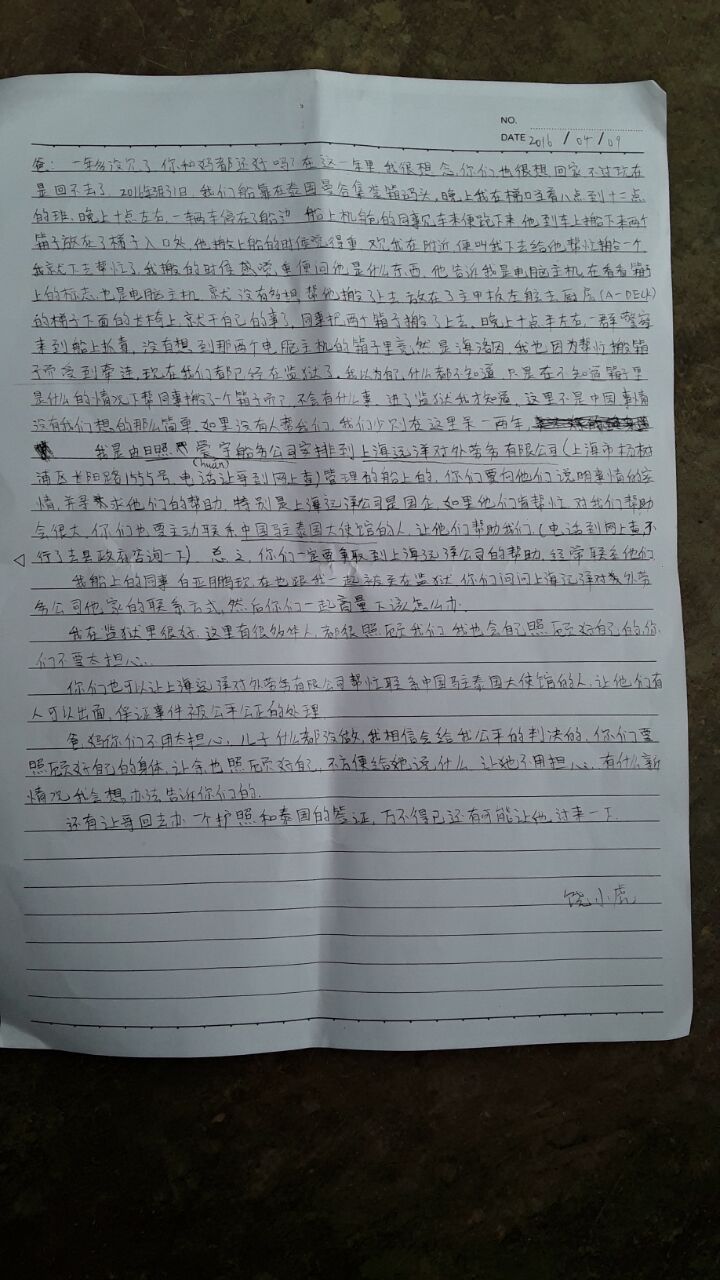 NO.
DATE 2016 / 04 / 09
爸: 一年多没见了你和妈都还好吗?在这一年里,我很想念你们也很想回家不过现在
是回不去了。2016年3月31日,我们船靠在泰国曼谷集装箱码头,晚上我在梯口当着八点到十二点
的班,晚上十点左右,一辆车停在了船边 船上机舱的同事见车来便跑下来 他到车上搬下来两个
箱子放在了梯子入口处,他搬上船的时候觉得重 见我在附近 便叫我下去给他帮忙搬一个
我就下去帮忙了,我搬的时候感觉重便问他是什么东西,他告诉我是电脑主机,在看看箱子
上的标志也是电脑主机 就没有多想帮他搬了上去放在了主甲板左舷主厨房(A-DECK)
的梯子下面的长椅上,就干自己的事了,同事把两个箱子搬了上去。晚上十点半左右,一群警察
来到船上检查,没有想到那两个电脑主机的箱子里竟然是海洛因,我也因为帮忙搬箱
子而受到牵连,现在我们都已经在监狱了。我以为自己什么都不知道 只是在不知道箱子里
是什么的情况下帮同事搬了一个箱子而已,不会有什么事,进了监狱我才知道,这里不是中国事情
没有我们想的那么简单,如果没有人帮我们,我们少则在这里呆一两年,
我是由日照 爱宇船务公司安排到上海远洋对外劳务有限公司(上海市杨树
浦区长阳路1555号,电话让哥到网上查)管理的船上的,你们要向他们说明事情的实
(chuán)
情,并寻求他们的帮助,特别是上海远洋公司是国企,如果他们肯帮忙 对我们帮助
会很大,你们也要主动联系中国驻泰国大使馆的人,让他们帮助我们,(电话到网上查,不
行了去县政府咨询一下) 总之,你们一定要争取到上海远洋公司的帮助,经常联系他们
我船上的同事白亚鹏现在也跟我一起被关在监狱 你们问问上海远洋对外劳
务公司他家的联系方式,然后你们一起商量下该怎么办.
我在监狱里很好,这里有很多华人,都很照顾我们我也会自己照顾好自己的,你
们不要太担心.
你们也可以让上海远洋对外劳务有限公司帮忙联系中国驻泰国大使馆的人,让他们有
人可以出面,保证事件被公平公正的处理.
爸妈你们不用太担心,儿子什么都没做,我相信会给我公平的判决的,你们要
照顾好自己的身体,让余也照顾好自己,不方便给她说什么,让她不用担心,有什么新
情况我会想办法告诉你们的.
还有让哥回去办一个护照和泰国的签证,万不得已还有可能让他过来一下.
饶小虎